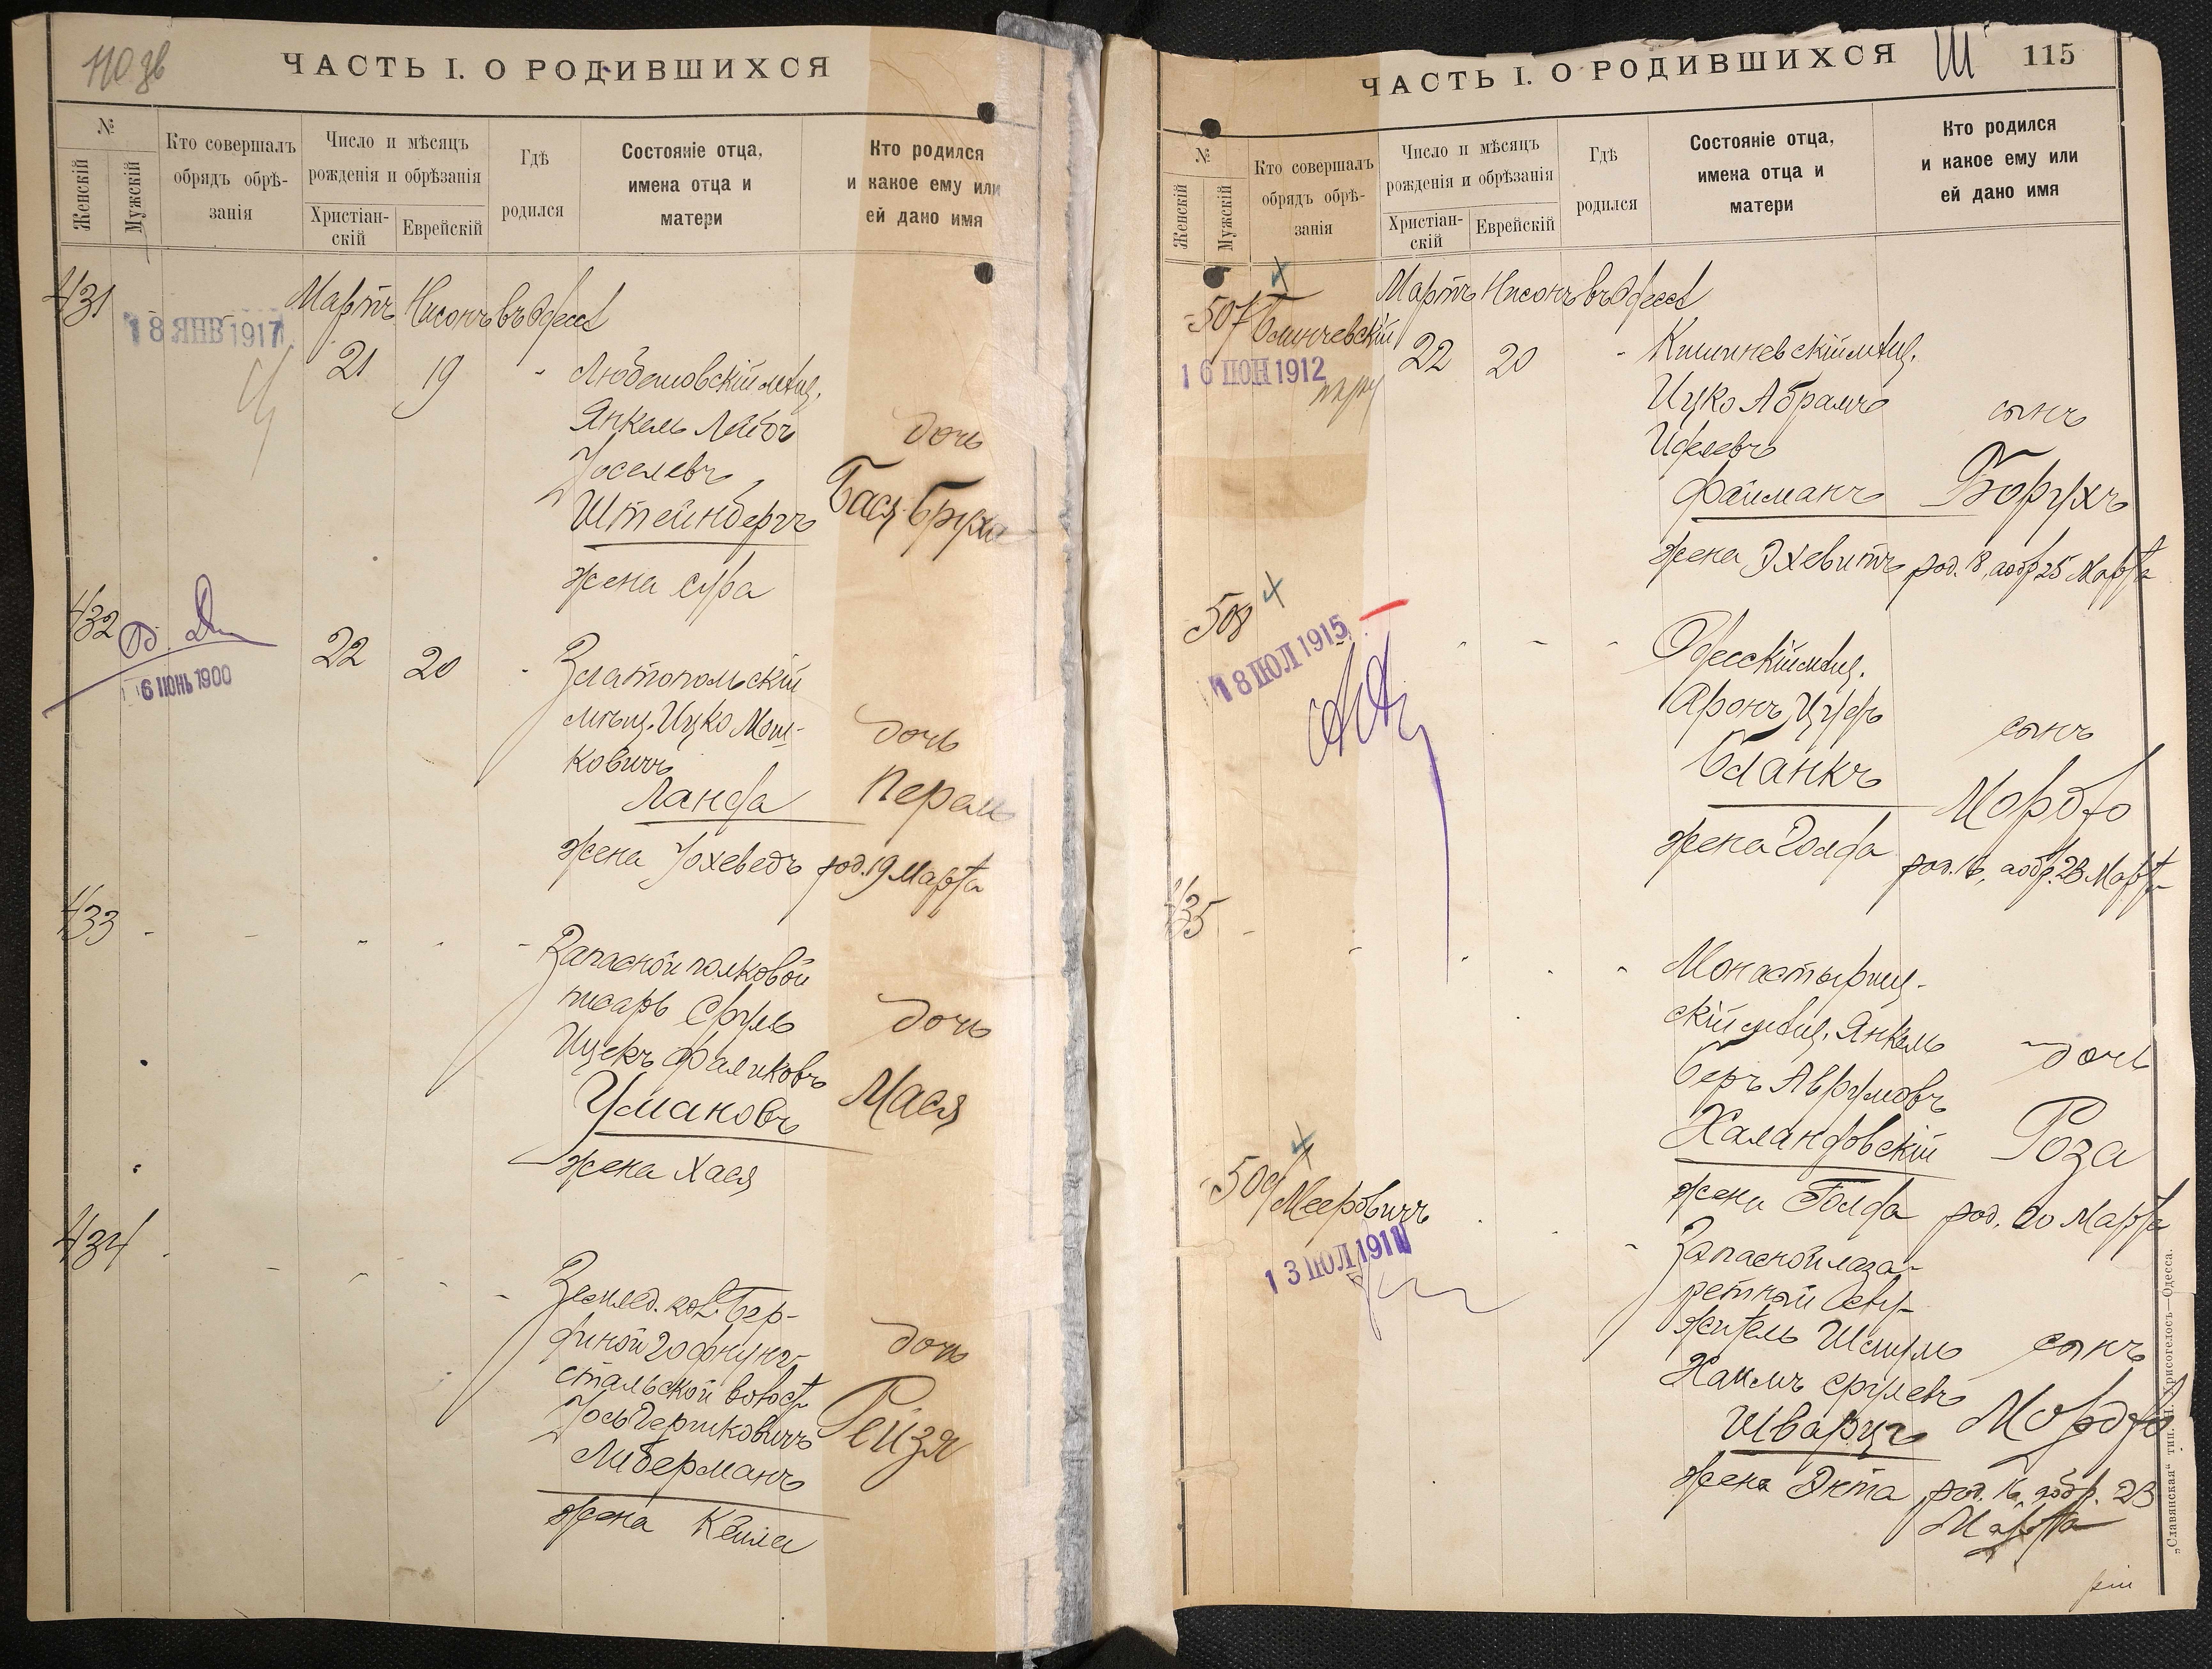 110 зв
ЧАСТЬ I. О РОДИВШИХСЯ
№
Женскій
Мужскій
Кто совершалъ
обрядъ обрѣ-
занія
Число и мѣсяцъ
рожденія и обрѣзанія
Христіан-
скій
Еврейскій
Гдѣ
родился
Состояніе отца,
имена отца и
матери
Кто родился
и какое ему или
ей дано имя
431
18 ЯНВ 1917
Мартъ Нисонъ въ Одессѣ
21 19 -
Любомовскій мѣщ.
Янкель Лейбъ
Іоселевъ
Штейнбергъ
жена Сура
дочь
Бася-Бруха
432
6 ІЮНЬ 1900
22 20 -
Златопольскій
мѣщ. Ицко Мош-
ковичъ
Ланда
жена Іохеведъ
дочь
Перель
род. 19 Марта
433
Запасной полковой
писарь Сруль
Ицекъ Фаликовъ
Умановъ
жена Хася
дочь
Мася
434
Землед. кол. Бер-
диной Гофнунг-
стальской волост
Іось Гершковичъ
Либерманъ
жена Кейла
дочь
Рейзя
ЧАСТЬ I. О РОДИВШИХСЯ
115
№
Женскій
Мужскій
Кто совершалъ
обрядъ обрѣ-
занія
Число и мѣсяцъ
рожденія и обрѣзанія
Христіан-
скій
Еврейскій
Гдѣ
родился
Состояніе отца,
имена отца и
матери
Кто родился
и какое ему или
ей дано имя
507
16 ІЮН 1912
Мартъ Нисонъ въ Одессѣ
22 20 -
Кишиневскій мѣщ.
Ицко Абрамъ
Иделевъ
Файманъ
жена Эхевитъ
сынъ
Борухъ
род. 18, а обр 25 Марта
508
18 ІЮЛ 1915
Одесскій мѣщ.
Аронъ Іудъ
Бланкъ
жена Голда
сынъ
Мордко
род. 16, а обр. 23 Марта
435
Монастырищ-
скій мѣщ. Янкель
Беръ Аврумовъ
Халандовскій
жена Голда
дочь
Роза
род. 20 Марта
509
Мееровичъ
13 ІЮЛ 1911
Запасной лаза-
ретный слу-
житель Шмуль
Хаимъ Срулевъ
Шварцъ
жена Энта
сынъ
Мордко
род. 16, а обр. 23
Марта
„Славянская“ тип. Н. Хрисогелосъ—Одесса.